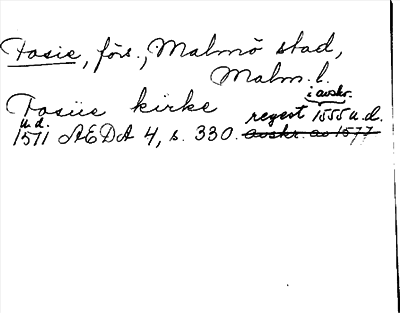 Tosie, förs., Malmö stad,
Malm. l.
i avskr.
Tosiie kirke regest 1555 u.d.
u.d.
1571 AEDA 4, s. 330. avskr. av 1577